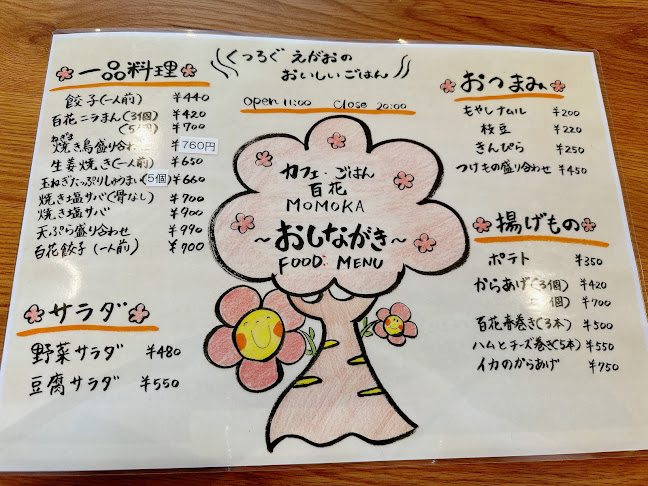 くつろぐ えがおの
おいしいごはん
Open 11:00 Close 20:00
カフェ・ごはん
百花
MOMOKA
～おしながき～
FOOD MENU
一品料理
餃子(一人前) ¥440
百花ニラまん(3個) ¥420
(5個) ¥700
ねぎま
焼き鳥盛り合わせ ¥760円
生姜焼き(一人前) ¥650
玉ねぎたっぷりしゅうまい(5個) ¥660
焼き塩サバ(骨なし) ¥700
焼き塩サバ ¥900
天ぷら盛り合わせ ¥990
百花餃子(一人前) ¥700
サラダ
野菜サラダ ¥480
豆腐サラダ ¥550
おつまみ
もやしナムル ¥200
枝豆 ¥220
きんぴら ¥250
つけもの盛り合わせ ¥450
揚げもの
ポテト ¥350
からあげ(3個) ¥420
個) ¥700
百花春巻き(3本) ¥500
ハムとチーズ巻き(5本) ¥550
イカのからあげ ¥750